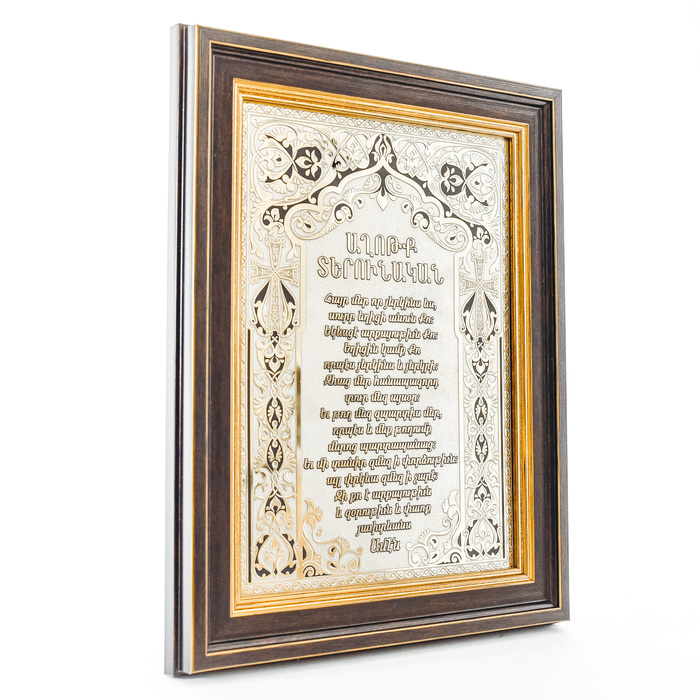 ԱՂՈԹՔ
ՏԵՐՈՒՆԱԿԱՆ
Հայր մեր որ յերկինս ես,
սուրբ եղիցի անուն Քո:
Եկեսցէ արքայութիւն Քո:
Եղիցին կամք Քո
որպէս յերկինս և յերկրի:
Զհաց մեր հանապազորդ
տուր մեզ այսօր:
Եւ թող մեզ զպարտիս մեր,
որպէս և մեք թողումք
մերոց պարտապանաց:
Եւ մի տանիր զմեզ ի փորձութիւն:
այլ փրկեա զմեզ ի չարէ:
Զի քո է արքայութիւն
և զօրութիւն և փառք
յաւիտեանս
Ամէն